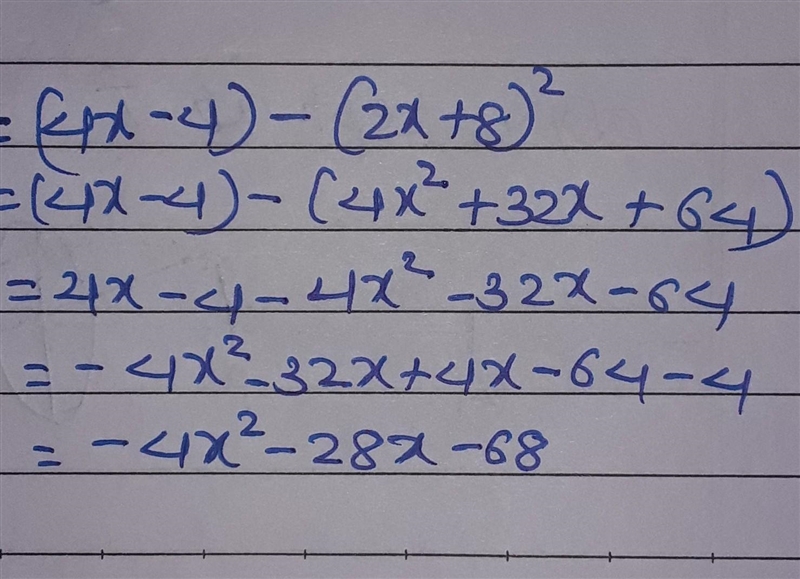 = (4x - 4) - (2x + 8)²
= (4x - 4) - (4x² + 32x + 64)
= 4x - 4 - 4x² - 32x - 64
= - 4x² - 32x + 4x - 64 - 4
= - 4x² - 28x - 68